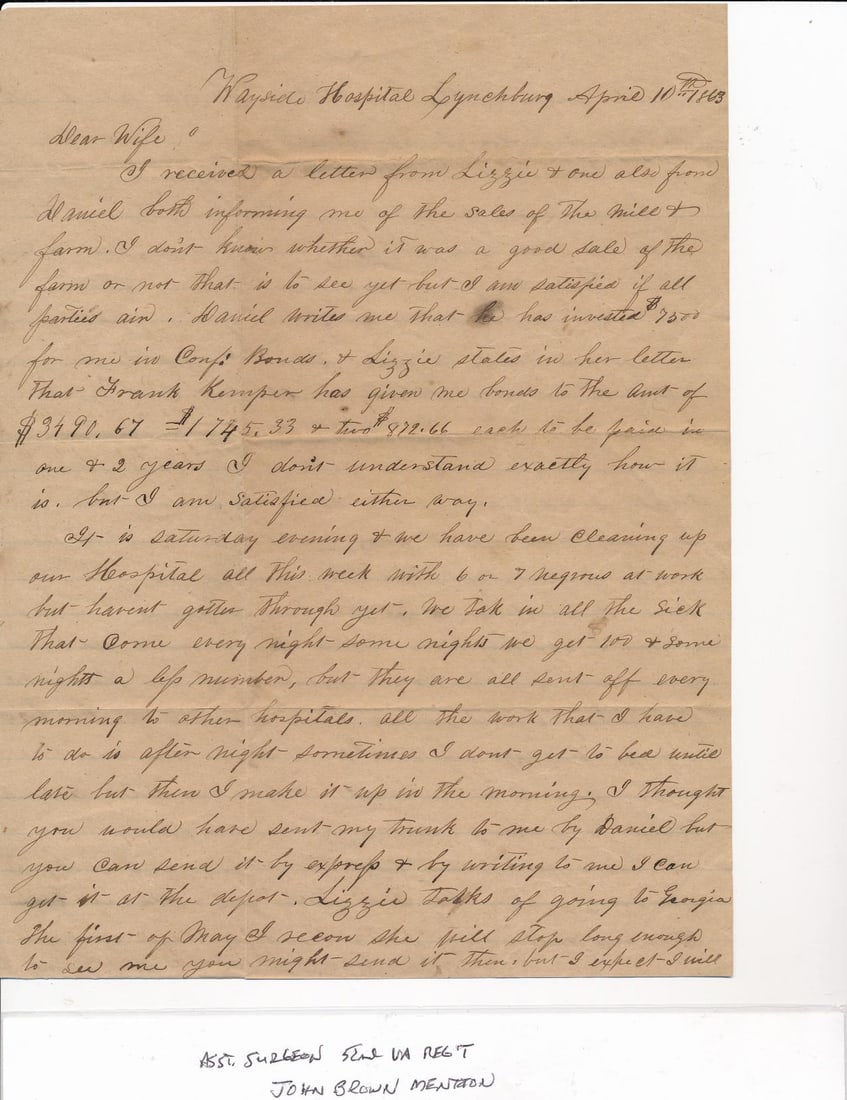 Wayside Hospital Lynchburg April 10th 1863
Dear Wife
I received a letter from Lizzie & one also from
Daniel both informing me of the sales of the Mill &
farm. I don't know whether it was a good sale of the
farm or not that is to see yet but I am satisfied if all
parties air. Daniel writes me that he has invested $7500
for me in Conf: Bonds. & Lizzie states in her letter
that Frank Kemper has given me bonds to the amt of
$3490.67 = $1745.33 & two $872.66 each to be paid in
one & 2 years I don't understand exactly how it
is. but I am satisfied either way.
It is saturday evening & we have been cleaning up
our Hospital all this week with 6 or 7 negrous at work
but havent gotten through yet. We tak in all the sick
that come every night some nights we get 100 & some
nights a less number, but they are all sent off every
morning to other hospitals. all the work that I have
to do is after night sometimes I dont get to bed until
late but then I make it up in the morning. I thought
you would have sent my trunk to me by Daniel but
you can send it by express & by writing to me I can
get it at the depot. Lizzie talks of going to Georgia
the first of May I recon she will stop long enough
to see me you might send it then. but I expect I will
ASST. SURGEON 52nd VA REG'T
JOHN BROWN MENTION